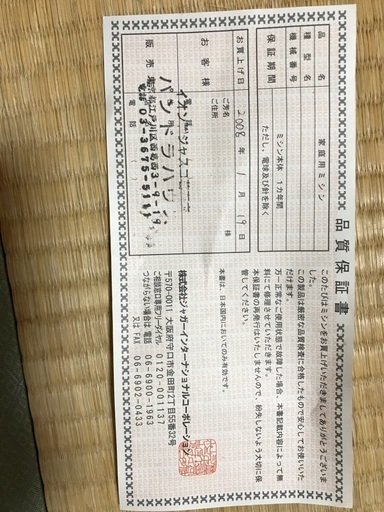 品質保証書
このたびはミシンをお買上げいただきましてありがとうございました。
この製品は厳密な品質検査に合格したもので安心してお使いいただけます。
万一正常なご使用状態で故障した場合、本書記載内容によって無料にて修理させていただきます。
本保証書の再発行はいたしませんので、紛失しないよう大切に保管してください。
本書は、日本国内においてのみ有効です。
株式会社ジャガーインターナショナルコーポレーション
〒570-0011 大阪府守口市金田町2丁目55番32号
ご相談窓口専用フリーダイヤル 0120-001137
つながらない場合は 電話 06-6900-1963
又は FAX 06-6902-0433
品名 家庭用ミシン
種型名
機械番号
保証期間 ミシン本体 1カ年間
ただし、電球及び針を除く
お買上げ日 2008年1月19日
お客様
ご芳名 様
ご住所
販売
イオン ジャスコ
パンドラハウス
江戸川区西葛西3-9-19
電話03-3675-5111
電話